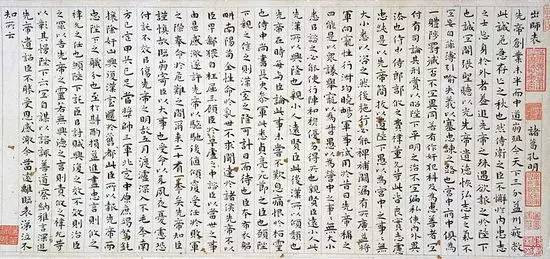 出師表 諸葛孔明
先帝創業未半而中道崩殂今天下三分益州疲敝
此誠危急存亡之秋也然侍衛之臣不懈於内忠志
之士忘身於外者蓋追先帝之殊遇欲報之於陛下
也誠宜開張聖聽以光先帝遺德恢弘志士之氣不
宜妄自菲薄引喻失義以塞忠諫之路也宮中府中俱為
一體陟罰臧否不宜異同若有作奸犯科及為忠善者宜
付有司論其刑賞以昭陛下平明之治不宜偏私使内外異
法也侍中侍郎郭攸之費禕董允等此皆良實志慮
忠純是以先帝簡拔以遺陛下愚以為宮中之事事無
大小悉以咨之然後施行必能裨補闕漏有所廣益將
軍向寵性行淑均曉暢軍事試用於昔日先帝稱之曰
能是以眾議舉寵為督愚以為營中之事事無大小
悉以咨之必能使行陣和穆優劣得所也親賢臣遠小人此
先漢所以興隆也親小人遠賢臣此後漢所以傾頹也
先帝在時每與臣論此事未嘗不歎息痛恨於桓靈
也侍中尚書長史參軍此悉貞亮死節之臣也陛下親
之信之則漢室之隆可計日而待也臣本布衣躬
耕南陽苟全性命於亂世不求聞達於諸侯先帝不以
臣卑鄙猥自枉屈三顧臣於草廬之中諮臣以當世之事
由是感激遂許先帝以驅馳後值傾覆受任於敗軍
之際奉命於危難之間爾來二十有一年矣先帝知臣
謹慎故臨崩寄臣以大事也受命以來夙夜憂慮恐
付託不效以傷先帝之明故五月渡瀘深入不毛今南
方已定甲兵已足當獎帥三軍北定中原庶竭駑鈍
攘除奸凶興復漢室還於舊都此臣所以報先帝而
忠陛下之職分也至於斟酌損益進盡忠言則攸之
禕允之任也願陛下託臣以討賊興復之效不效則治臣
之罪以告先帝之靈若無興德之言則責攸之禕允等
以彰其慢陛下亦宜自謀以諮諏善道察納雅言深追
先帝遺詔臣不勝受恩感激今當遠離臨表涕泣不
知所云